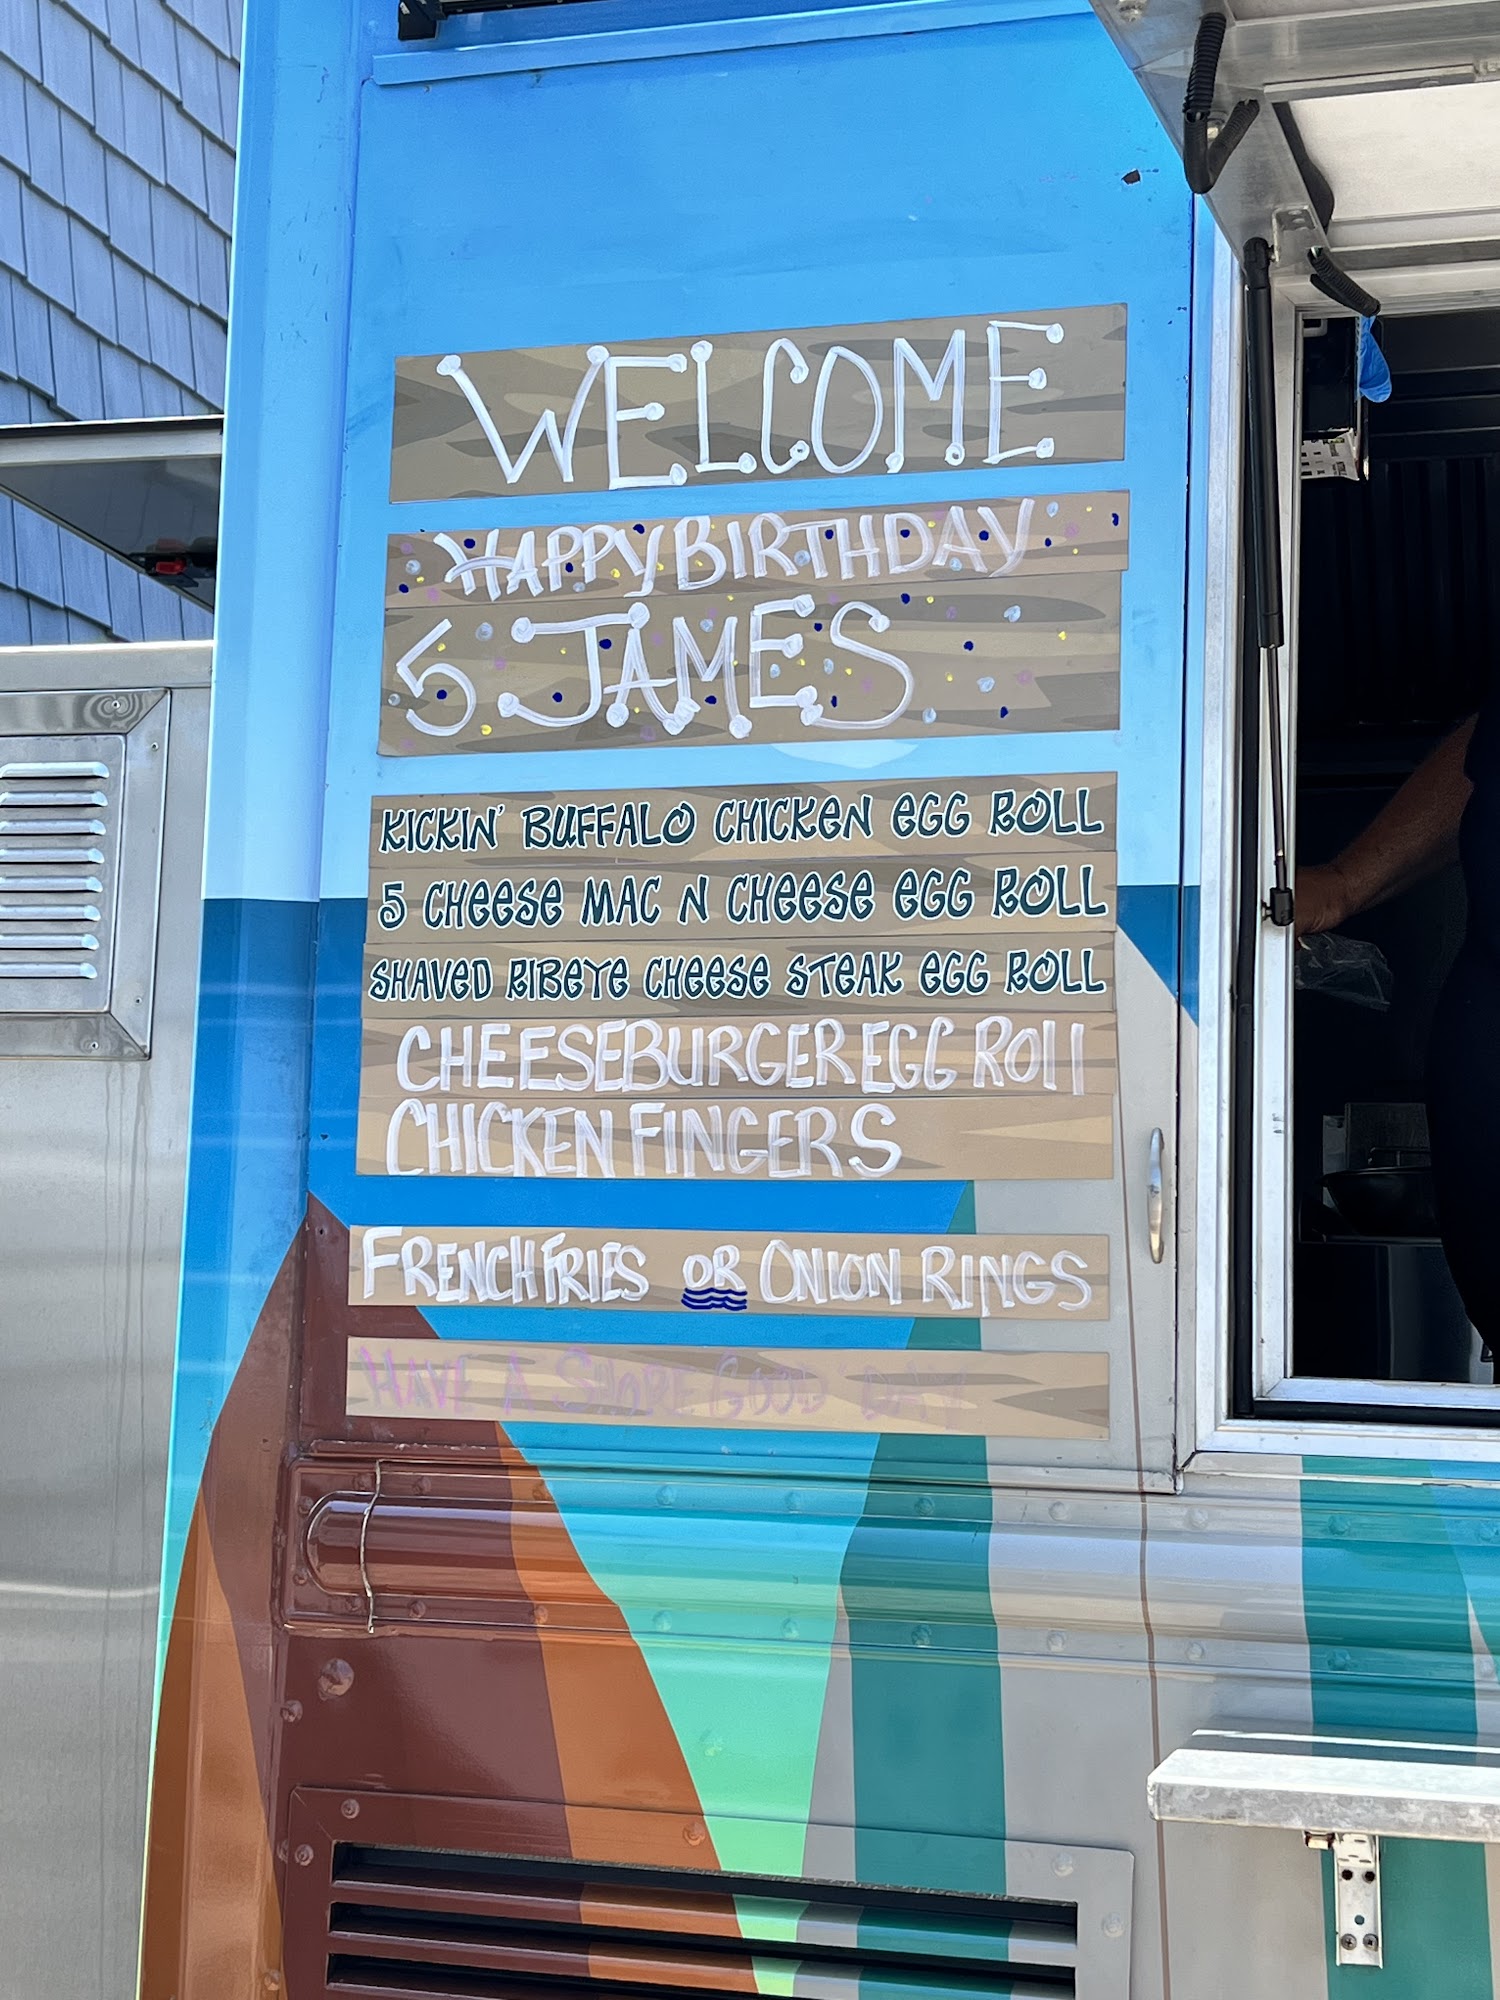 WELCOME
HAPPY BIRTHDAY
5 JAMES
KICKIN' BUFFALO CHICKEN EGG ROLL
5 CHEESE MAC N CHEESE EGG ROLL
SHAVED RIBEYE CHEESE STEAK EGG ROLL
CHEESEBURGER EGG ROll
CHICKEN FINGERS
FRENCH FRIES OR ONION RINGS
HAVE A SHORE GOOD DAY